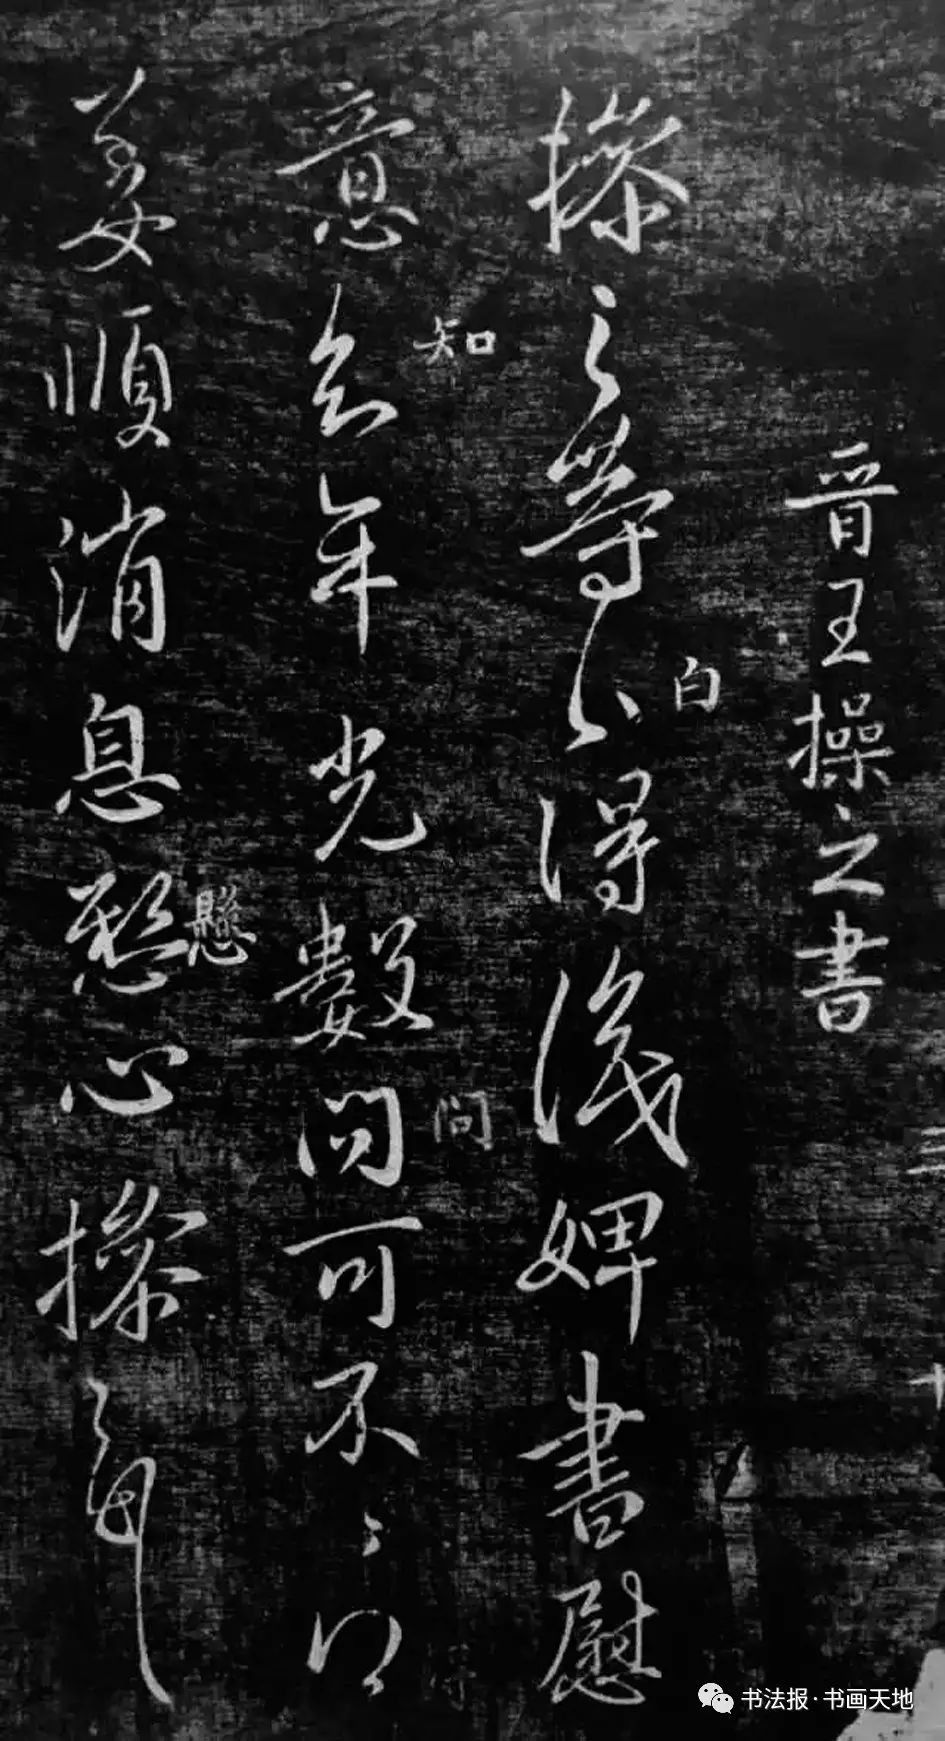 晋王操之書
操之等白得識婢書慰
白
意知年光數問可不ミ得
知
問
姜順消息懸心操之等
懸
三
十
书法报·书画天地